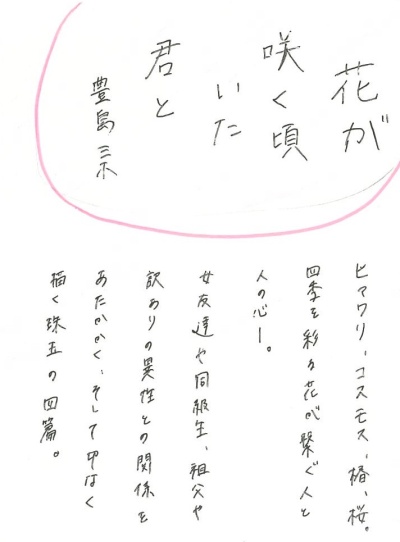 花が
咲く頃
いた
君と
豊島ミホ
ヒマワリ、コスモス、椿、桜。
四季を彩る花が繋ぐ人と
人の心ー。
女友達や同級生、祖父や
訳ありの異性との関係を
あたたかく、そして切なく
描く珠玉の四篇。